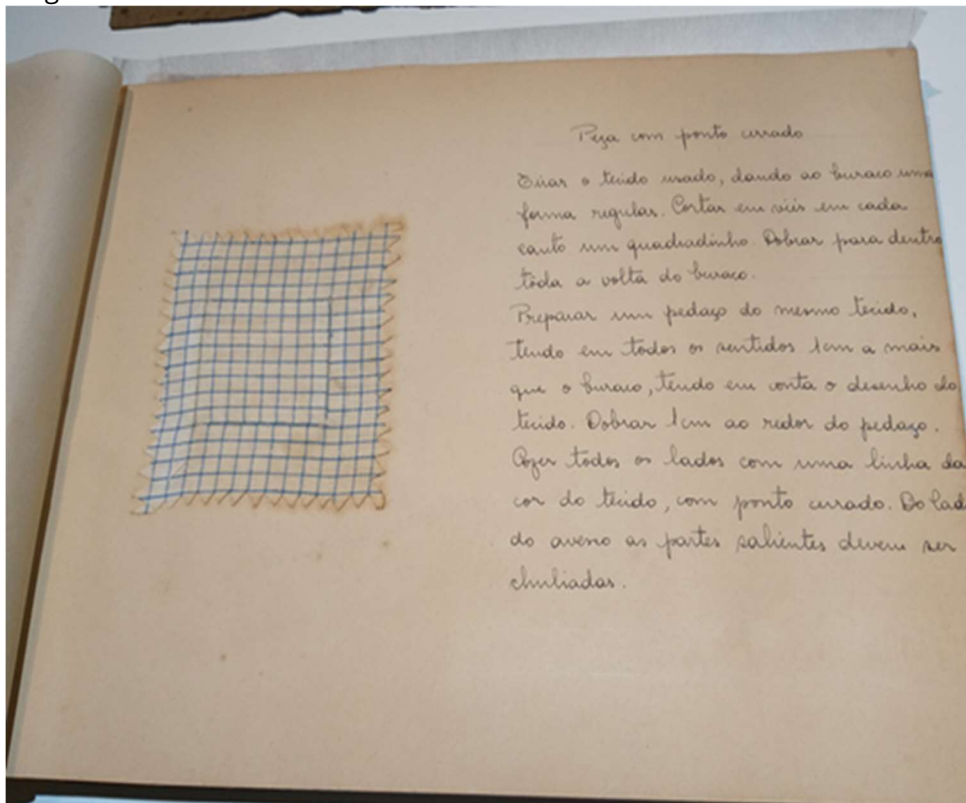 Peça com ponto cerrado
Tirar o tecido usado, dando ao buraco uma
forma regular. Cortar em viés em cada
canto um quadradinho. Dobrar para dentro
tôda a volta do buraco.
Preparar um pedaço do mesmo tecido,
tendo em todos os sentidos 1cm a mais
que o buraco, tendo em conta o desenho do
tecido. Dobrar 1cm ao redor do pedaço.
Cozer todos os lados com uma linha da
cor do tecido, com ponto cerrado. Do lad
do avesso as partes salientes devem ser
chuliadas.